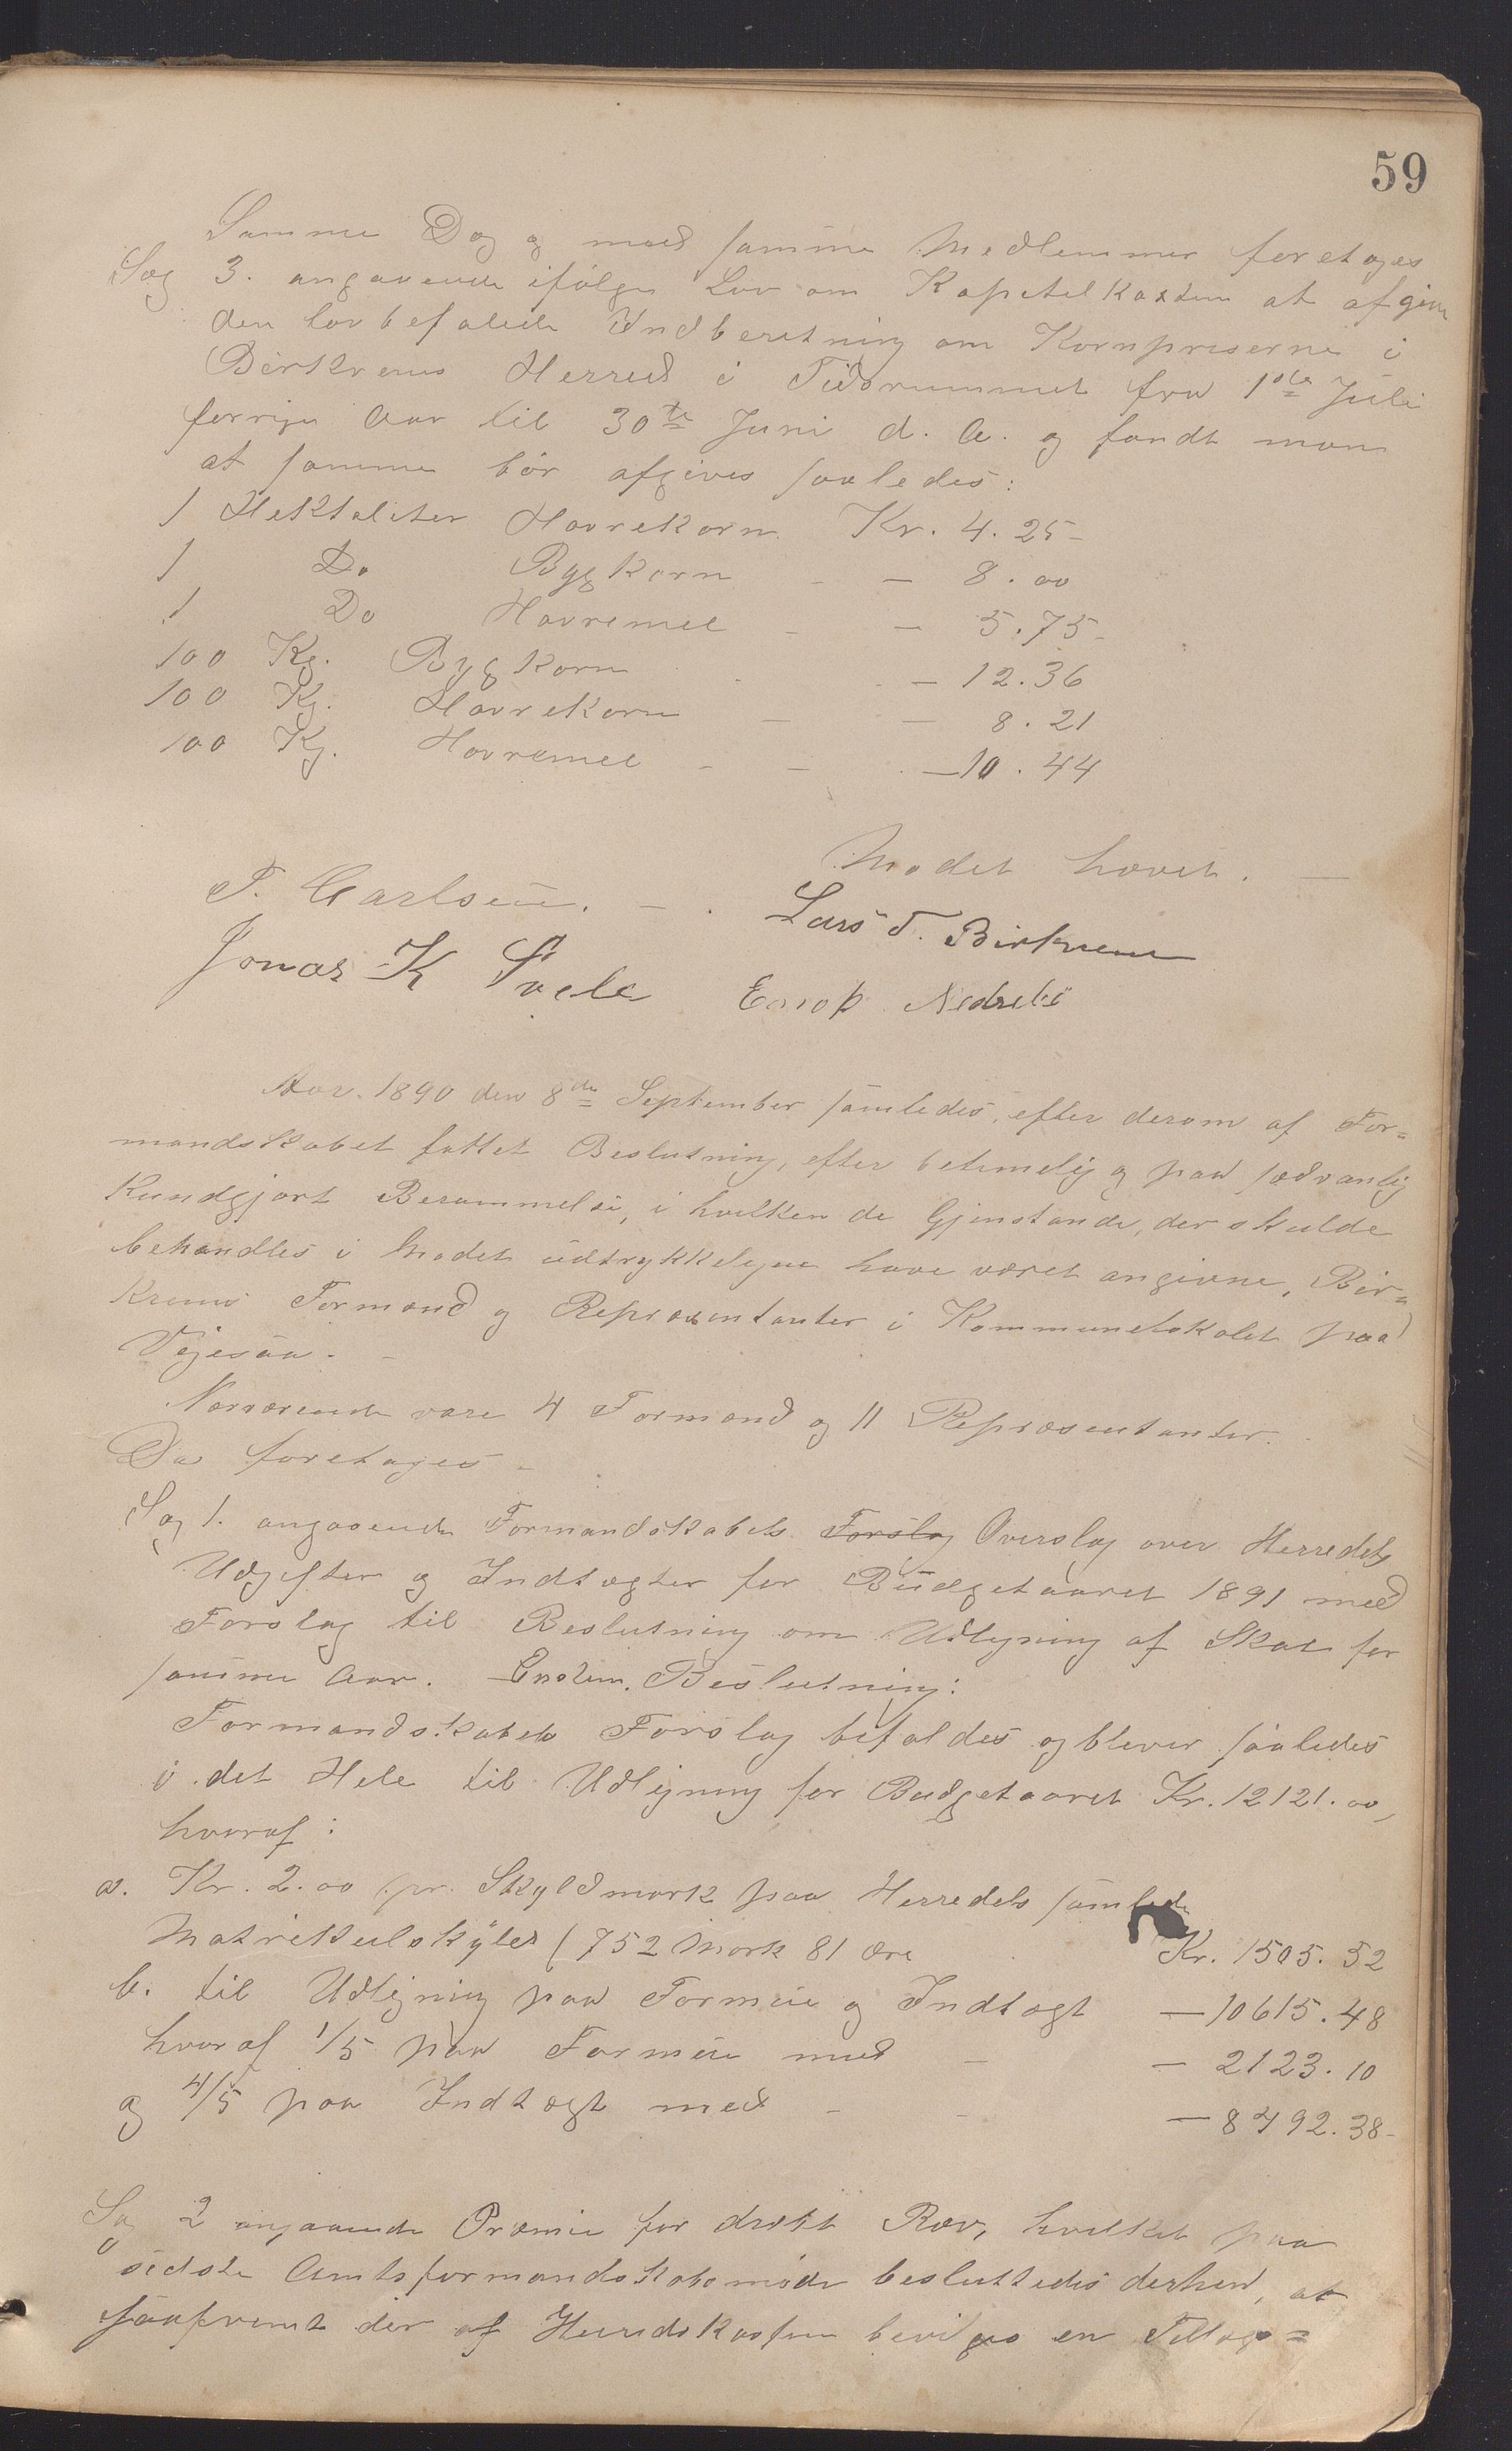 59
Samme Dag og med samme Medlemmer foretoges
Sag 3. angaaende ifølge Lov om Kapitelstaxten at afgive
den lovbefalede Indberetning om Kornpriserne i
Birkrems Herred i Tidsrummet fra 1ste Juli
forrige Aar til 30te Juni d. A. og fandt man
at samme bør afgives saaledes:
1 Hektoliter Havrekorn Kr. 4.25-
1 Do Bygkorn - — 8.00
1 Do Havremel - — 5.75-
100 Kg. Bygkorn - — 12.36
100 Kg. Havrekorn — — 8.21
100 Kg. Havremel - — —10.44
Mødet hævet. —
T. Carlsen. — . Lars T. Birkrem
Jonas K Svele Enok Nedrebø
Aar 1890 den 8de September samledes, efter derom af For=
mandskabet fattet Beslutning, efter betimelig og paa sædvanlig
Kundgjort Berammelse, i hvilken de Gjenstande, der skulde
behandles i Mødet udtrykkeligen have været angivne, Bir=
krems Formænd og Repræsentanter i Kommunelokalet paa
Vigesaa. -
Nærværende vare 4 Formænd og 11 Repræsentanter.
Da foretoges -
Sag 1. angaaende Formandskabets Forslag Overslag over Herredets
Udgifter og Indtægter for Büdgetaaret 1891 med
Forslag til Beslutning om Udligning af Skat for
samme Aar. Enstem. Beslutning:
Formandskabets Forslag bifaldes og bliver saaledes
i det Hele til Udligning for Budgetaaret Kr. 12121.00,
hvoraf:
a. Kr. 2.00 pr. Skyldmark paa Herredets samlede
Matrikulskyld (752 Mark 81 Øre Kr. 1505.52
b. til Udligning paa Formue og Indtægt —10615.48
hvoraf 1/5 paa Formue med - — 2123.10
og 4/5 paa Indtægt med - - — 8492.38-
Sag 2 angaaende Præmie for dræbt Ræv, hvilket paa
sidste Amtsformandskabsmøde besluttedes derhen, at
saafremt der af Herredskassen beviliges en Tillægs=